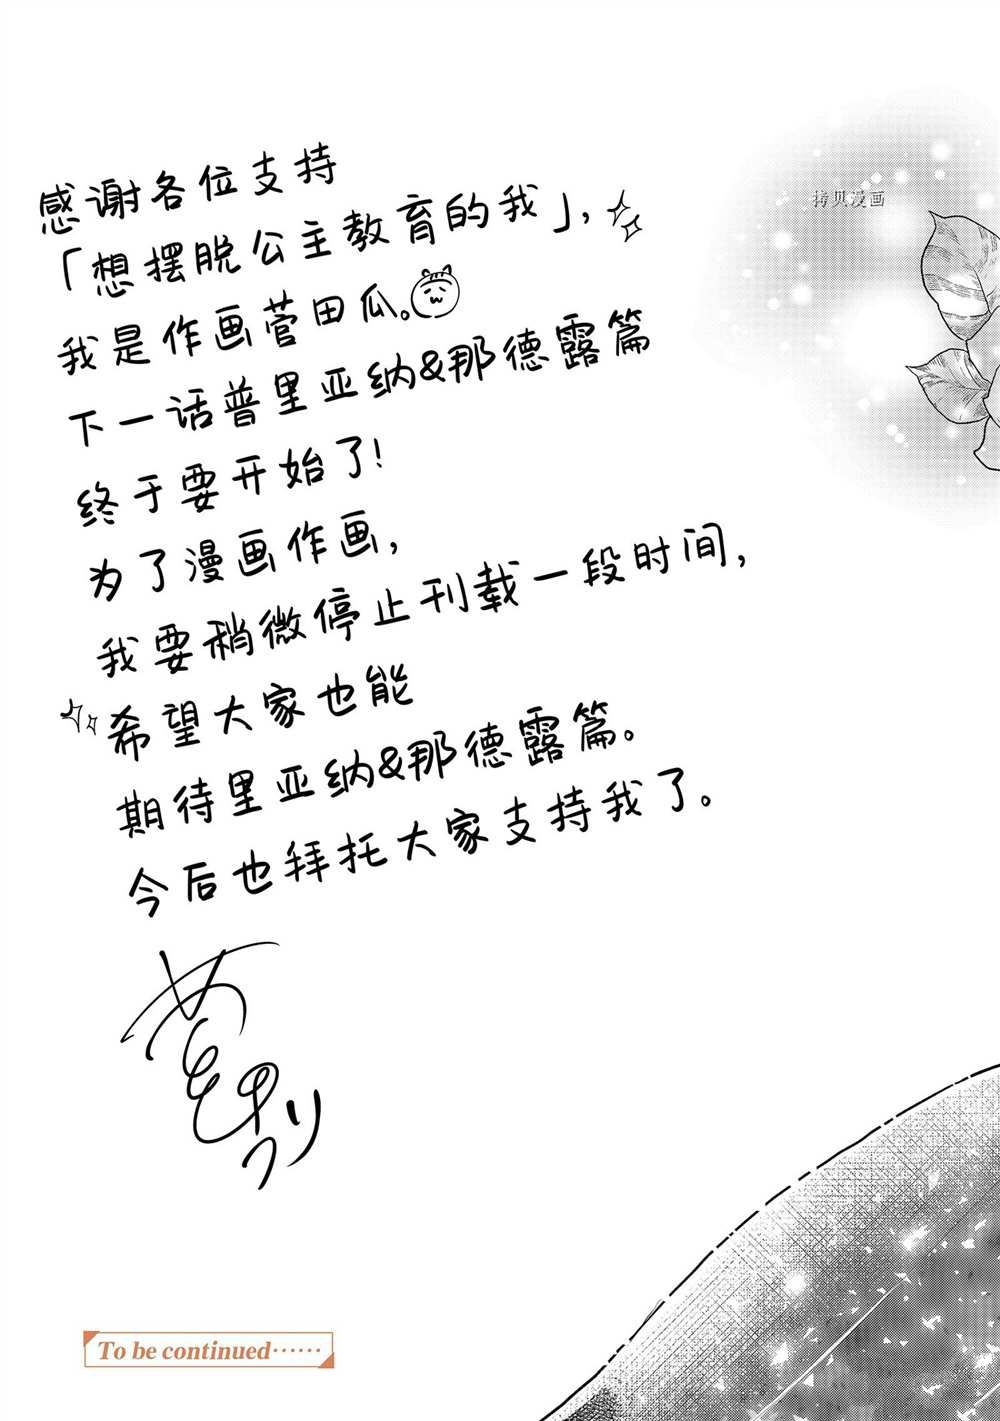 拷贝漫画
感谢各位支持
「想摆脱公主教育的我」,
我是作画菅田瓜。
下一话普里亚纳&那德露篇
终于要开始了!
为了漫画作画,
我要稍微停止刊载一段时间,
希望大家也能
期待里亚纳&那德露篇。
今后也拜托大家支持我了。
To be continued……